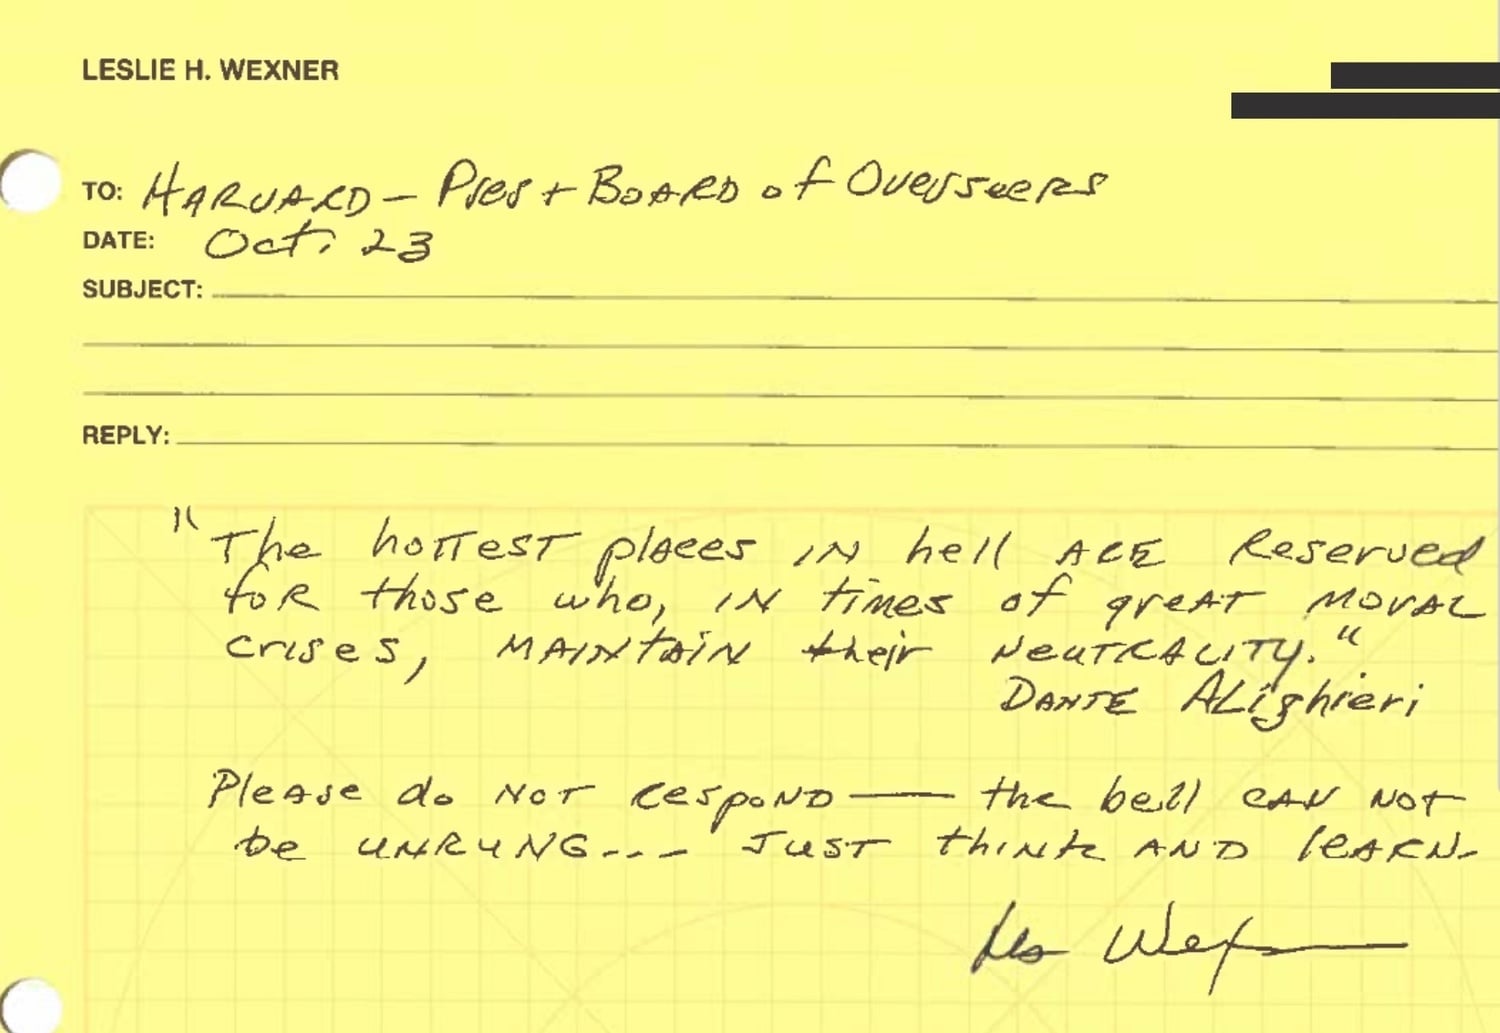 LESLIE H. WEXNER
TO: HARVARD - Pres + BOARD of Overseers
DATE: Oct. 23
SUBJECT:
REPLY:
"The hottest places in hell are reserved
for those who, in times of great moral
crises, maintain their neutrality."
Dante Alighieri
Please do not respond — the bell can not
be unrung... Just think and learn-
Les Wexner